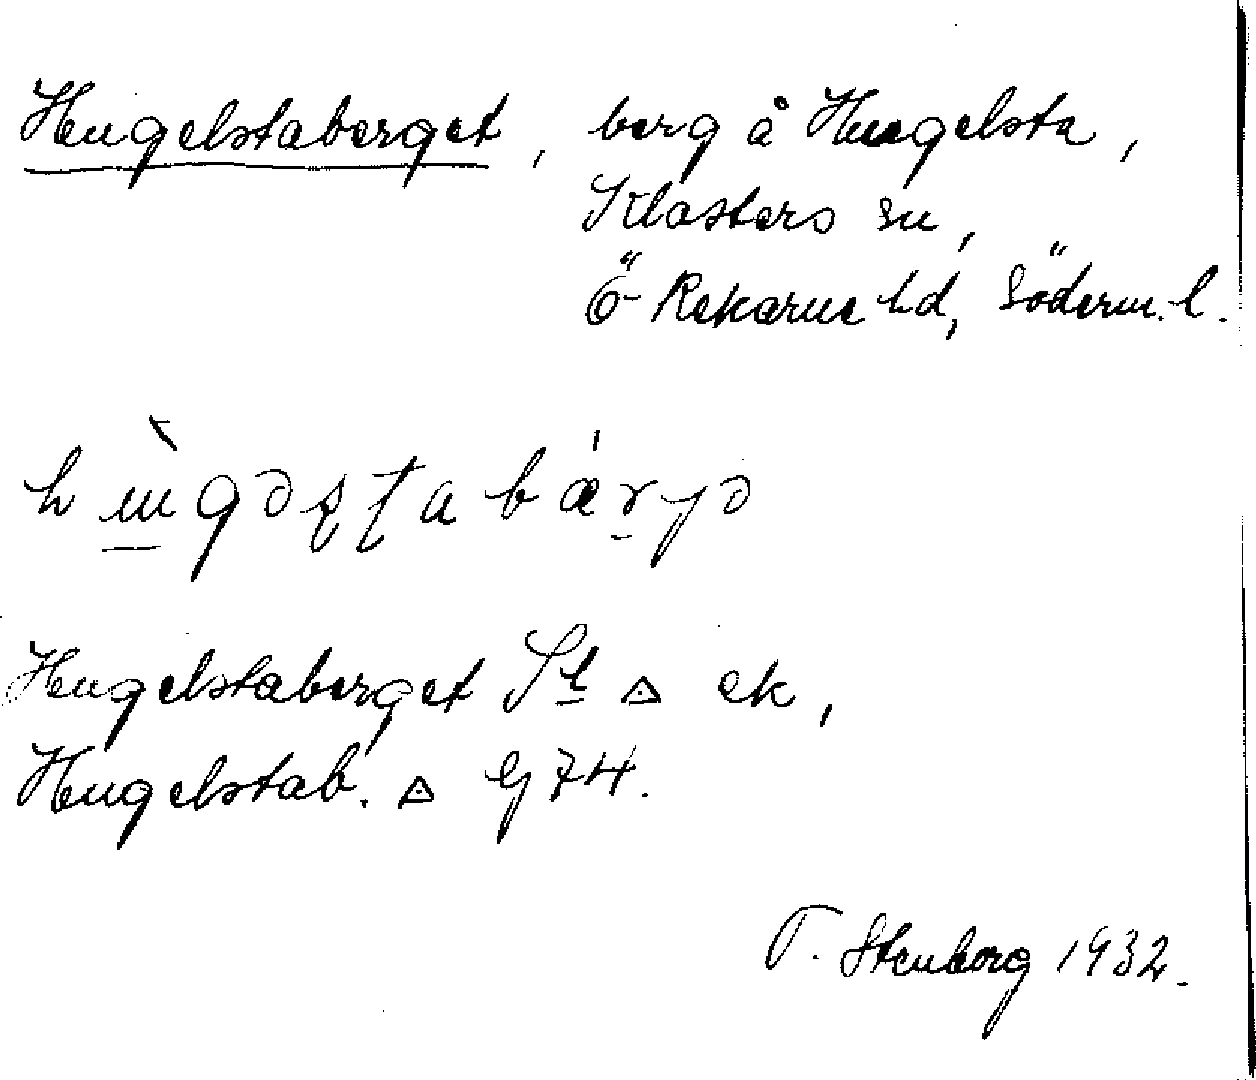 Hugelstaberget, berg å Hugelsta,
Klosters sn,
Ö Rekarne hd, Söderm. l.
Hugelstaberget St △ ek,
Hugelstab. △ Gj 74.
T. Stenberg 1932.